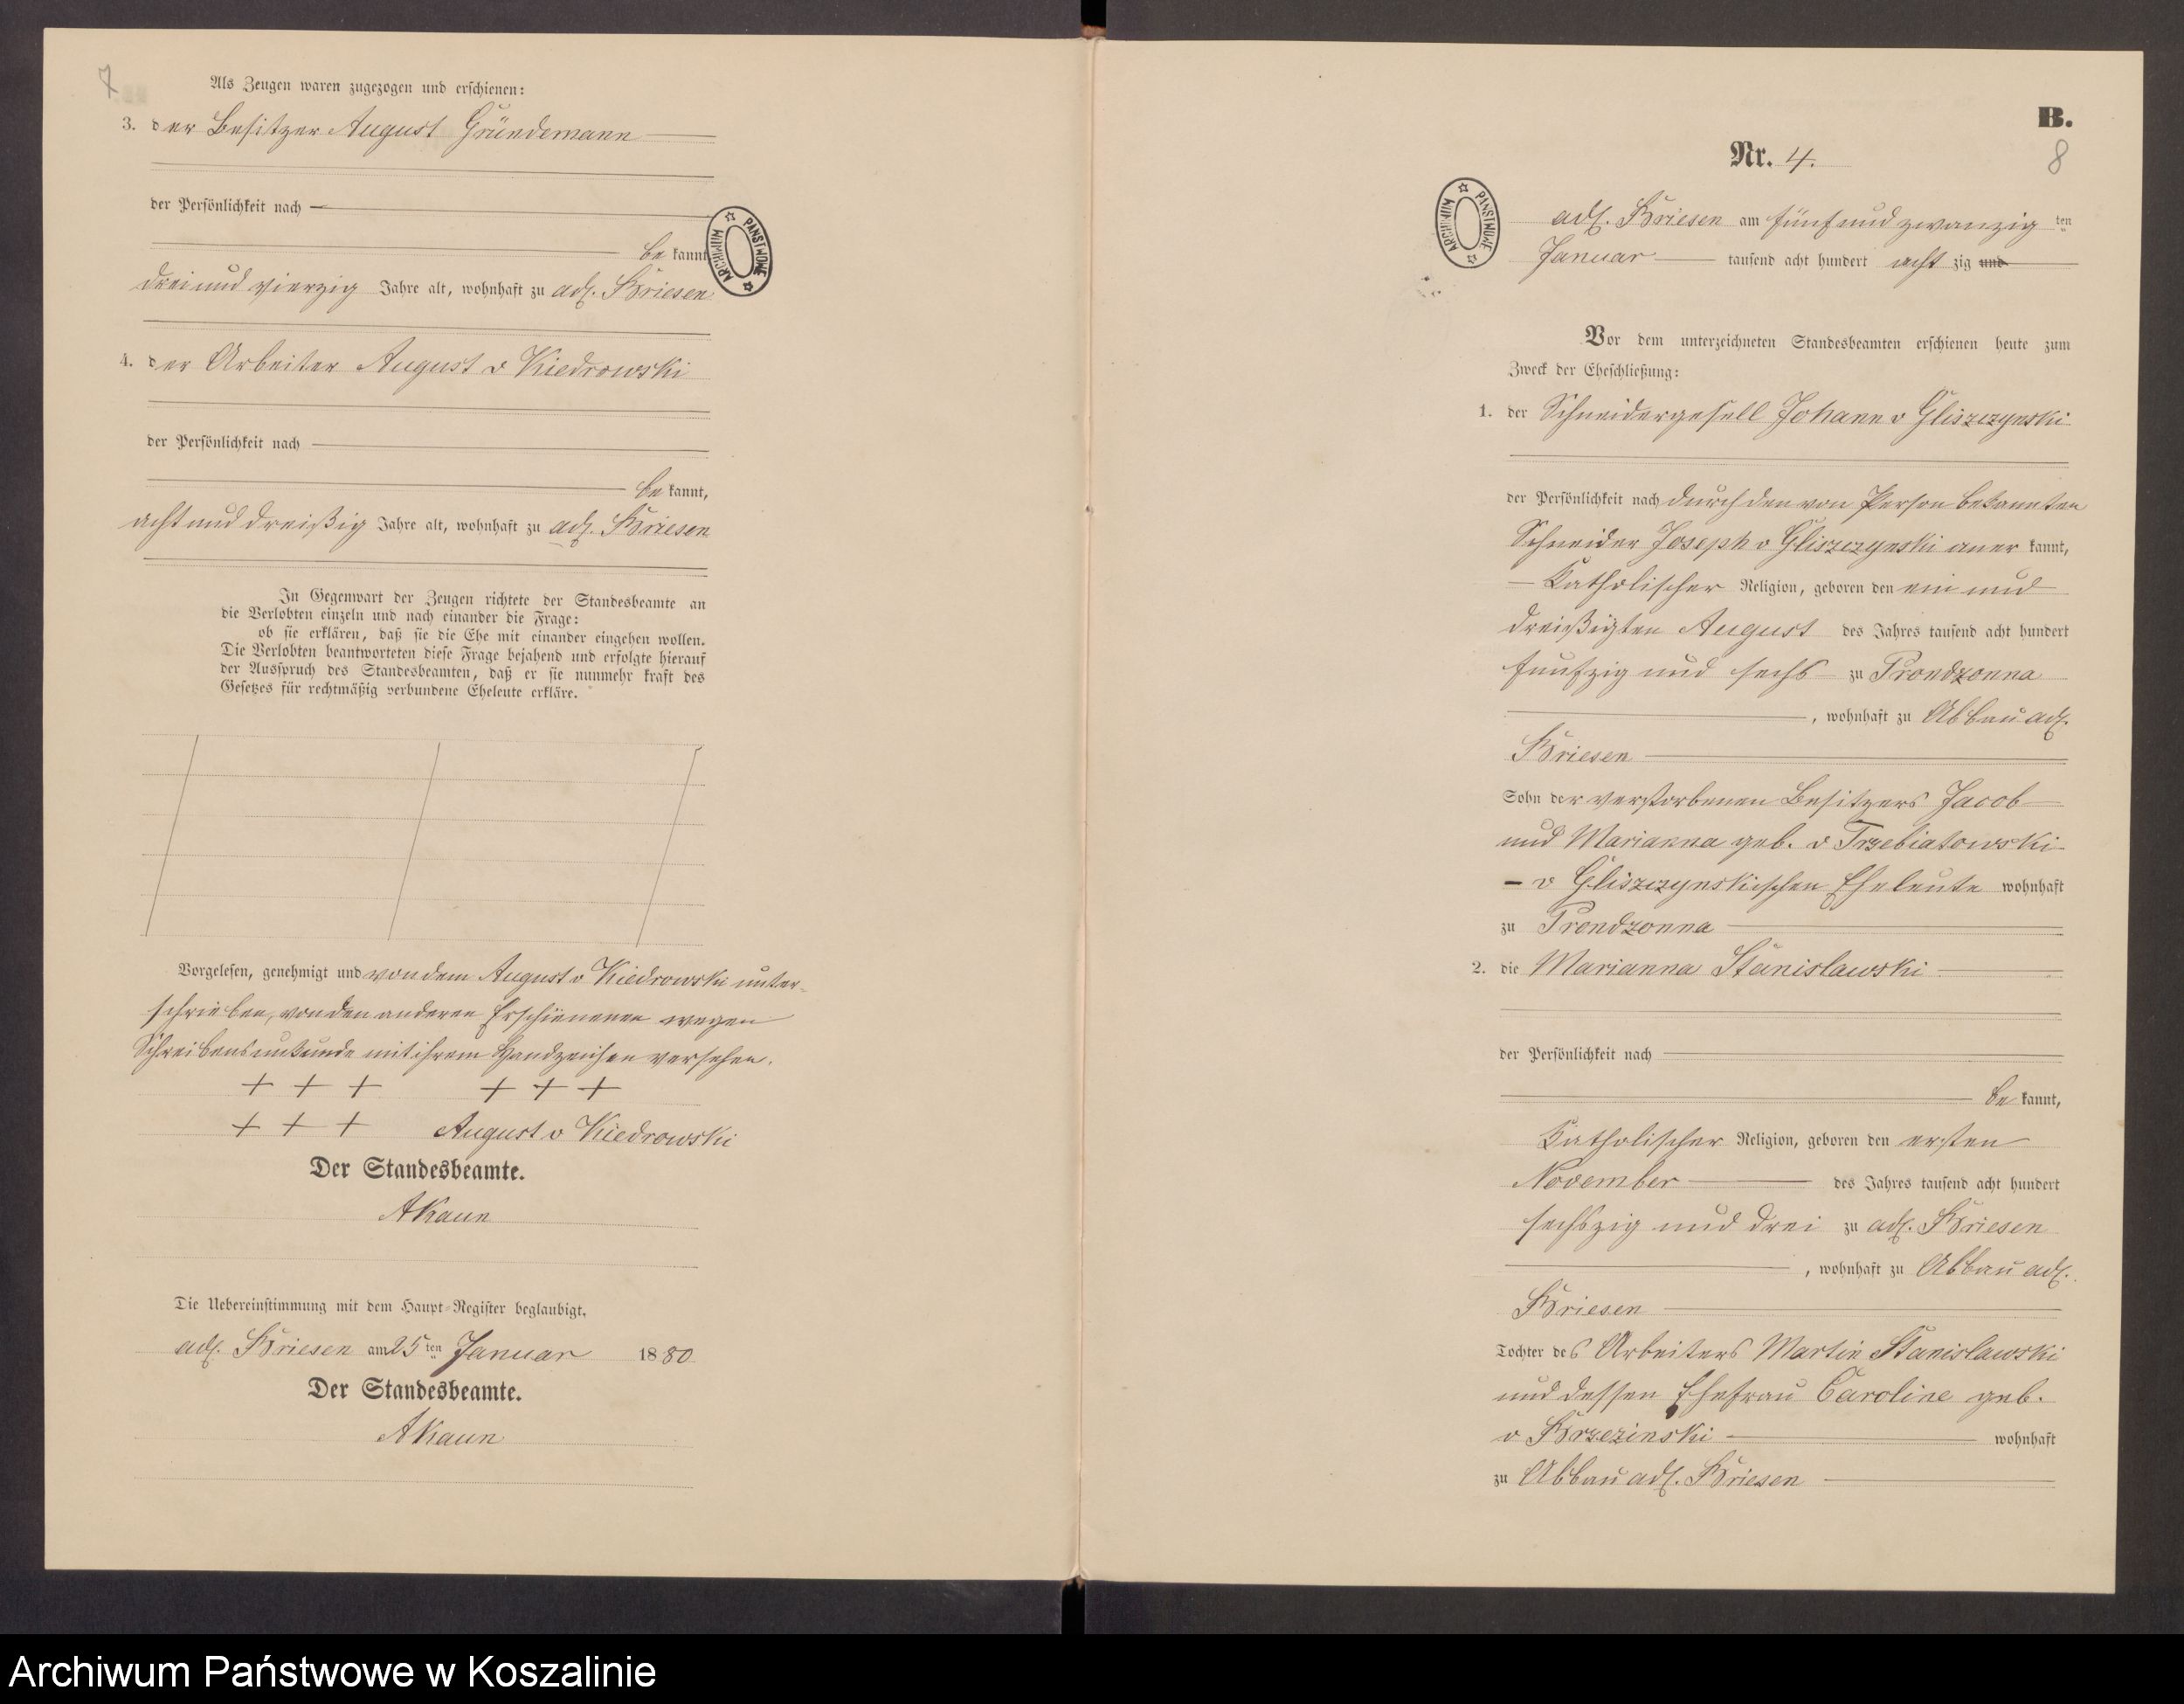 7
Als Zeugen waren zugezogen und erschienen:
3. der Besitzer August Gründemann
der Persönlichkeit nach
bekannt,
dreiundvierzig Jahre alt, wohnhaft zu adl. Briesen
4. der Arbeiter August v Kiedrowski
der Persönlichkeit nach
bekannt,
achtunddreißig Jahre alt, wohnhaft zu adl. Briesen
In Gegenwart der Zeugen richtete der Standesbeamte an
die Verlobten einzeln und nach einander die Frage:
ob sie erklären, daß sie die Ehe mit einander eingehen wollen.
Die Verlobten beantworteten diese Frage bejahend und erfolgte hierauf
der Ausspruch des Standesbeamten, daß er sie nunmehr kraft des
Gesetzes für rechtmäßig verbundene Eheleute erkläre.
Vorgelesen, genehmigt und von dem August v Kiedrowski unter-
schrieben, von den anderen Erschienenen wegen
Schreibensunkunde mit ihrem Handzeichen versehen.
+ + + + + +
+ + + August v Kiedrowski
Der Standesbeamte.
AKaun
Die Uebereinstimmung mit dem Haupt-Register beglaubigt,
adl. Briesen am 25ten Januar 1880
Der Standesbeamte.
AKaun
ARCHIWUM PAŃSTWOWE
B.
8
Nr. 4.
ARCHIWUM PAŃSTWOWE
adl. Briesen am fünfundzwanzig ten
Januar tausend acht hundert achtzig und
Vor dem unterzeichneten Standesbeamten erschienen heute zum
Zweck der Eheschließung:
1. der Schneidergesell Johann v Gliszczynski
der Persönlichkeit nach durch den von Person bekannten
Schneider Joseph v Gliszczynski anerkannt,
Katholischer Religion, geboren den ein und
dreißigten August des Jahres tausend acht hundert
funfzig und sechs zu Prondzonna
, wohnhaft zu Abbau adl.
Briesen
Sohn der verstorbenen Besitzers Jacob
und Marianna geb. v Trzebiatowski
v Gliszczynskischen Eheleute wohnhaft
zu Prondzonna
2. die Marianna Stanislawski
der Persönlichkeit nach
bekannt,
Katholischer Religion, geboren den ersten
November des Jahres tausend acht hundert
sechszig und drei zu adl. Briesen
, wohnhaft zu Abbau adl.
Briesen
Tochter des Arbeiters Martin Stanislawski
und dessen Ehefrau Caroline geb.
v Brzezinski wohnhaft
zu Abbau adl. Briesen
Archiwum Państwowe w Koszalinie